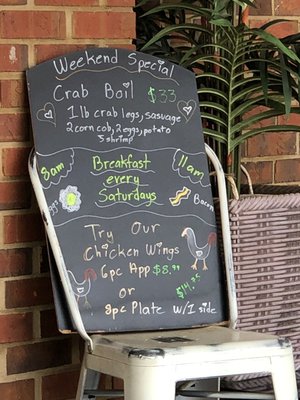 Weekend Special
Crab Boil $33
1 lb crab legs, sasuage
2 corn cob, 2 eggs, potato
5 shrimp
8am Breakfast 11am
every
Saturdays
Bacon
Try Our
Chicken Wings
6pc App $8.99
or $14.25
8pc Plate w/1 side